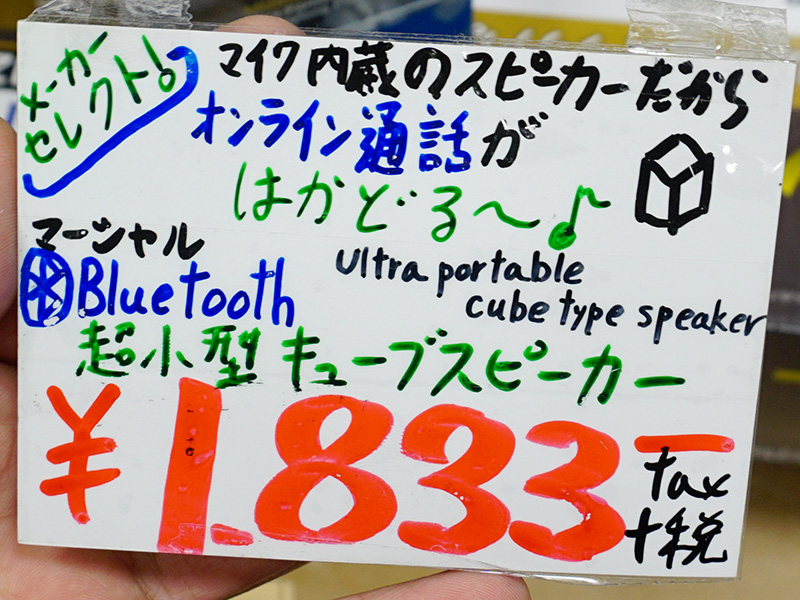 メーカー
セレクト!
マイク内蔵のスピーカーだから
オンライン通話が
はかどる〜♪
マーシャル
Bluetooth
ultra portable
cube type speaker
超小型キューブスピーカー
¥1.833ー
tax
+税